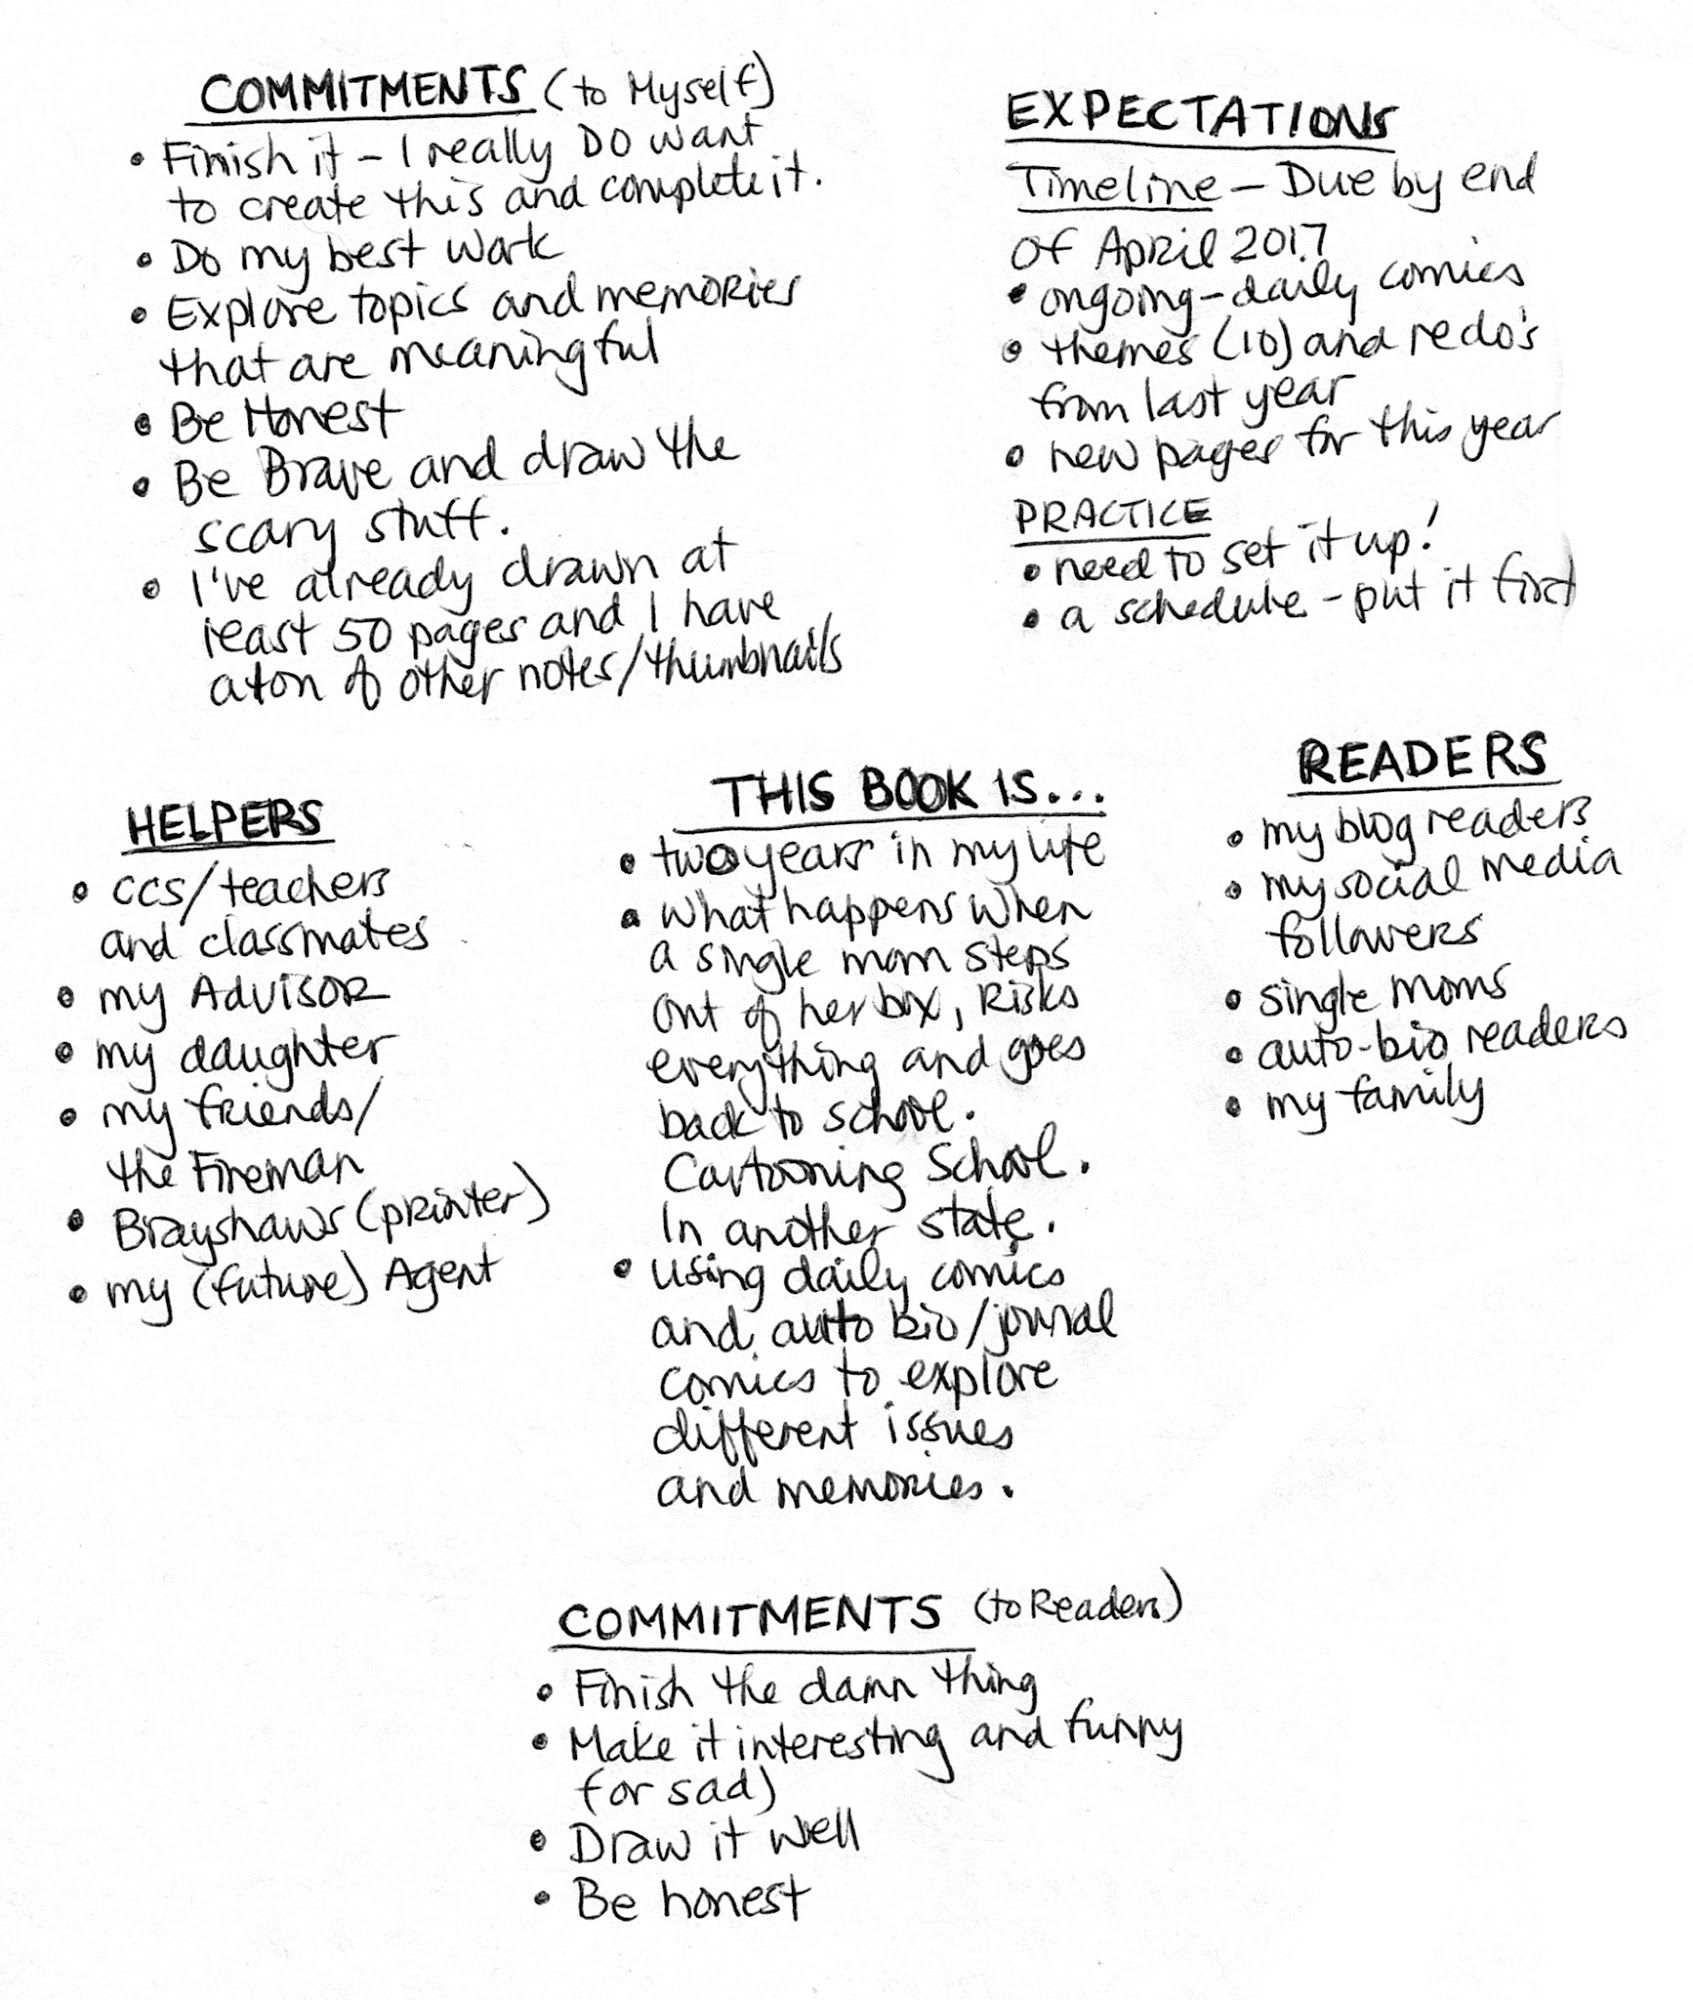 COMMITMENTS (to Myself)
• Finish it – I really DO want
to create this and complete it.
• Do my best work
• Explore topics and memories
that are meaningful
• Be Honest
• Be Brave and draw the
scary stuff.
• I've already drawn at
least 50 pages and I have
a ton of other notes/thumbnails
EXPECTATIONS
Timeline – Due by end
of April 2017
• ongoing – daily comics
• themes (10) and redo's
from last year
• new pages for this year
PRACTICE
• need to set it up!
• a schedule – put it first
HELPERS
• CCS/teachers
and classmates
• my Advisor
• my daughter
• my friends/
the Fireman
• Brayshaws (printer)
• my (future) Agent
THIS BOOK IS...
• two years in my life
• what happens when
a single mom steps
out of her box, Risks
everything and goes
back to school.
Cartooning School.
In another state.
• using daily comics
and auto bio/journal
comics to explore
different issues
and memories.
READERS
• my blog readers
• my social media
followers
• single moms
• auto-bio readers
• my family
COMMITMENTS (to Readers)
• Finish the damn thing
• Make it interesting and funny
(or sad)
• Draw it well
• Be honest